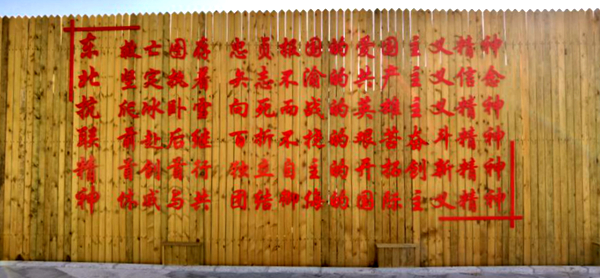 东北抗联精神
救亡图存 忠贞报国的爱国主义精神
坚定执着 矢志不渝的共产主义信念
爬冰卧雪 向死而战的英雄主义精神
前赴后继 百折不挠的艰苦奋斗精神
独立自主的开拓创新精神
休戚与共 团结御侮的国际主义精神